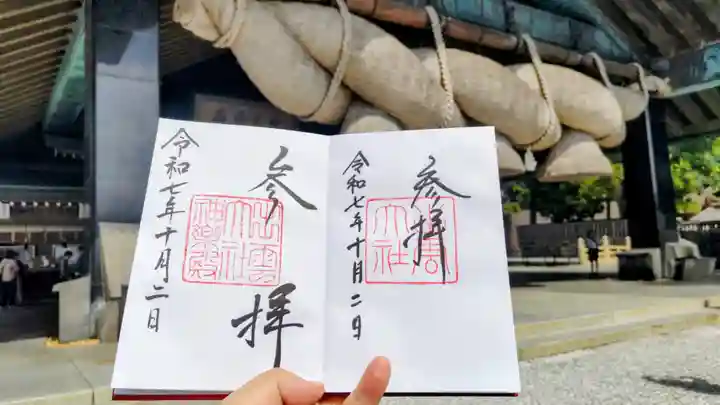 参拝
大社
令和七年十月二日
参拝
出雲
大社
神楽殿
令和七年十月二日